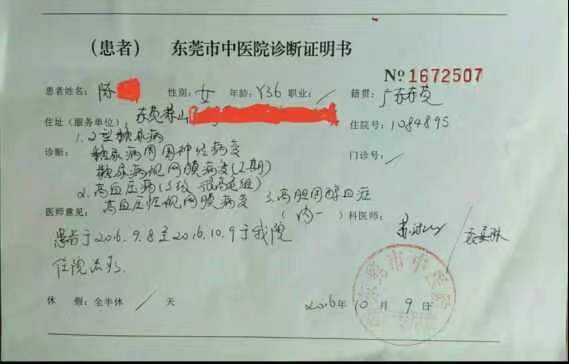 (患者) 东莞市中医院诊断证明书
№1672507
患者姓名: 陈 性别: 女 年龄: Y36 职业: / 籍贯: 广东东莞
住址(服务单位): 东莞茶山 住院号: 1084895
诊断: 1.2型糖尿病
糖尿病周围神经病变 门诊号: /
糖尿病视网膜病变(2期)
2.高血压病(3级 很高危组) 3.高胆固醇血症
高血压性视网膜病变
医师意见: (内一)科医师:
患者于2016.9.8至2016.10.9于我院
住院
休 假: 全半休 / 天 2016年10月9日
东莞市中医院